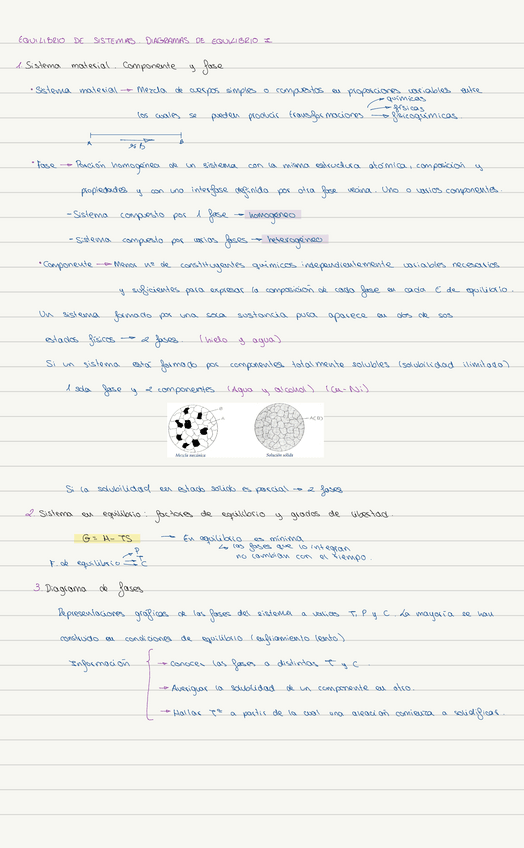 EQUILIBRIO DE SISTEMAS. DIAGRAMAS DE EQUILIBRIO I
1. Sistema material. Componente y fase
• Sistema material → Mezcla de cuerpos simples o compuestos en proporciones variables entre
químicas
los cuales se pueden producir transformaciones → físicas
fisicoquímicas
A % B B
• Fase → Porción homogénea de un sistema con la misma estructura atómica, composición y
propiedades y con una interfase definida por otra fase vecina. Uno o varios componentes.
- Sistema compuesto por 1 fase → homogéneo
- Sistema compuesto por varias fases → heterogéneo
• Componente → Menor nº de constituyentes químicos independientemente variables necesarios
y suficientes para expresar la composición de cada fase en cada E de equilibrio.
Un sistema formado por una sola sustancia pura aparece en dos de sus
estados físicos → 2 fases. (hielo y agua)
Si un sistema está formado por componentes totalmente solubles (solubilidad ilimitada)
1 sola fase y 2 componentes (Agua y alcohol) (Cu-Ni)
B
A
A(B)
Mezcla mecánica
Solución sólida
Si la solubilidad en estado sólido es parcial → 2 fases
2. Sistema en equilibrio: factores de equilibrio y grados de libertad.
G = H - TS → En equilibrio es mínima
↳ las fases que lo integran
no cambian con el tiempo.
F. de equilibrio → P
T
C
3. Diagrama de fases
Representaciones gráficas de las fases del sistema a varios T, P y C. La mayoría se han
construido en condiciones de equilibrio (enfriamiento lento)
Información
→ Conocer las fases a distintas T y C.
→ Averiguar la solubilidad de un componente en otro.
→ Hallar Tª a partir de la cual una aleación comienza a solidificar.